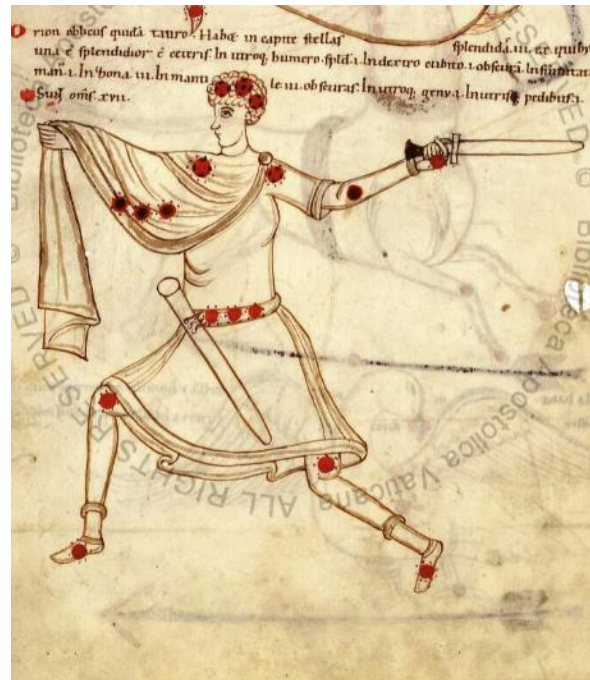 Orion oblicus quidē tauro. Habē in capite stellas splendidā. iii. ex quibus
una ē splendidior ē ceteris. In utroq; humero. spl̄d. i. In dextro cubito. i. obscurā. In
manu. i. In zona. iii. In manu le iii. obscuras. In utroq; genu. i. In utrisq; pedibus. i.
Sunt om̄s. xvii.
© Biblioteca Apostolica Vaticana ALL RIGHTS RESERVED